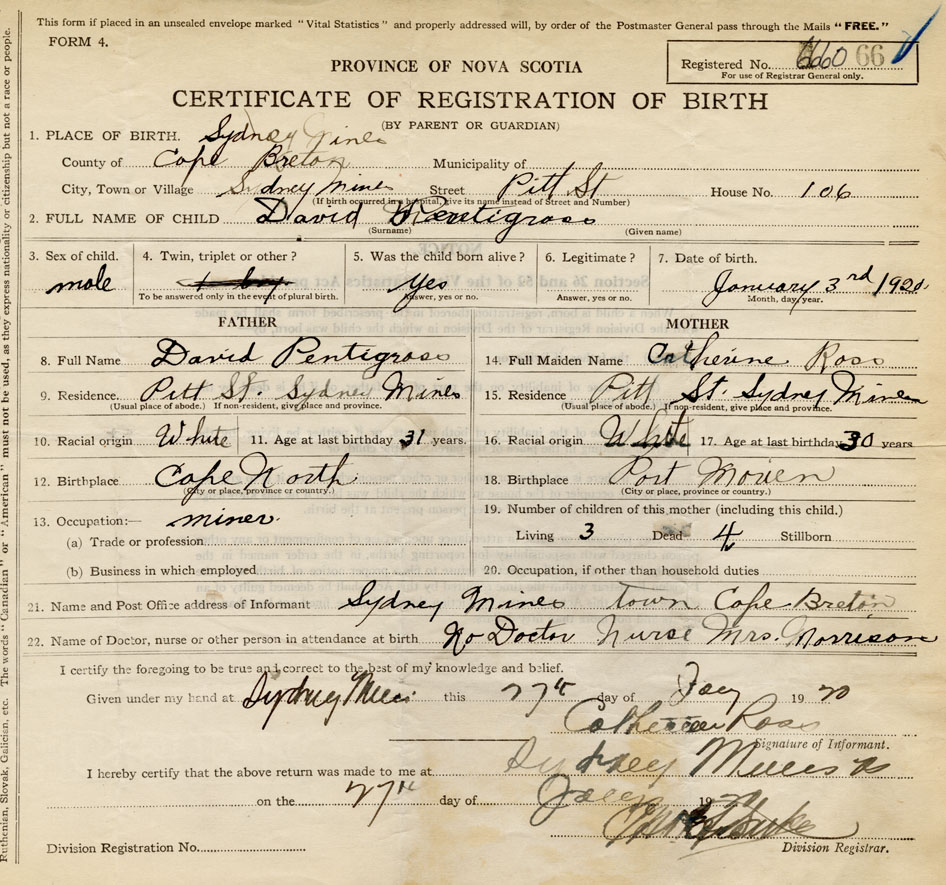 This form if placed in an unsealed envelope marked "Vital Statistics" and properly addressed will, by order of the Postmaster General pass through the Mails "FREE."
FORM 4.
Registered No. 6660 66
For use of Registrar General only.
PROVINCE OF NOVA SCOTIA
CERTIFICATE OF REGISTRATION OF BIRTH
(BY PARENT OR GUARDIAN)
1. PLACE OF BIRTH. Sydney Mines
County of Cape Breton Municipality of
City, Town or Village Sydney Mines Street Pitt St House No. 106
(If birth occurred in a hospital, give its name instead of Street and Number)
2. FULL NAME OF CHILD David Pentigrass
(Surname) (Given name)
3. Sex of child. 4. Twin, triplet or other? 5. Was the child born alive? 6. Legitimate? 7. Date of birth.
male Yes January 3rd 1920.
To be answered only in the event of plural birth. Answer, yes or no. Answer, yes or no. Month, day, year.
FATHER MOTHER
8. Full Name David Pentigrass 14. Full Maiden Name Catherine Ross
9. Residence. Pitt St. Sydney Mines 15. Residence Pitt St. Sydney Mines
(Usual place of abode.) If non-resident, give place and province. (Usual place of abode.) If non-resident, give place and province.
10. Racial origin White 11. Age at last birthday 31 years. 16. Racial origin White 17. Age at last birthday 30 years
12. Birthplace Cape North 18. Birthplace Port Morien
(City or place, province or country.) (City or place, province or country.)
13. Occupation:— miner. 19. Number of children of this mother (including this child.)
(a) Trade or profession Living 3 Dead 4 Stillborn
(b) Business in which employed 20. Occupation, if other than household duties
21. Name and Post Office address of Informant Sydney Mines town Cape Breton
22. Name of Doctor, nurse or other person in attendance at birth No Doctor Nurse Mrs. Morrison
I certify the foregoing to be true and correct to the best of my knowledge and belief.
Given under my hand at Sydney Mines this 27th day of Jany 1920
Catherine Ross
Signature of Informant.
I hereby certify that the above return was made to me at Sydney Mines
on the 27th day of Jany 1920
Division Registrar.
Division Registration No.
Ruthenian, Slovak, Galician, etc. The words "Canadian" or "American" must not be used, as they express nationality or citizenship but not a race or people.